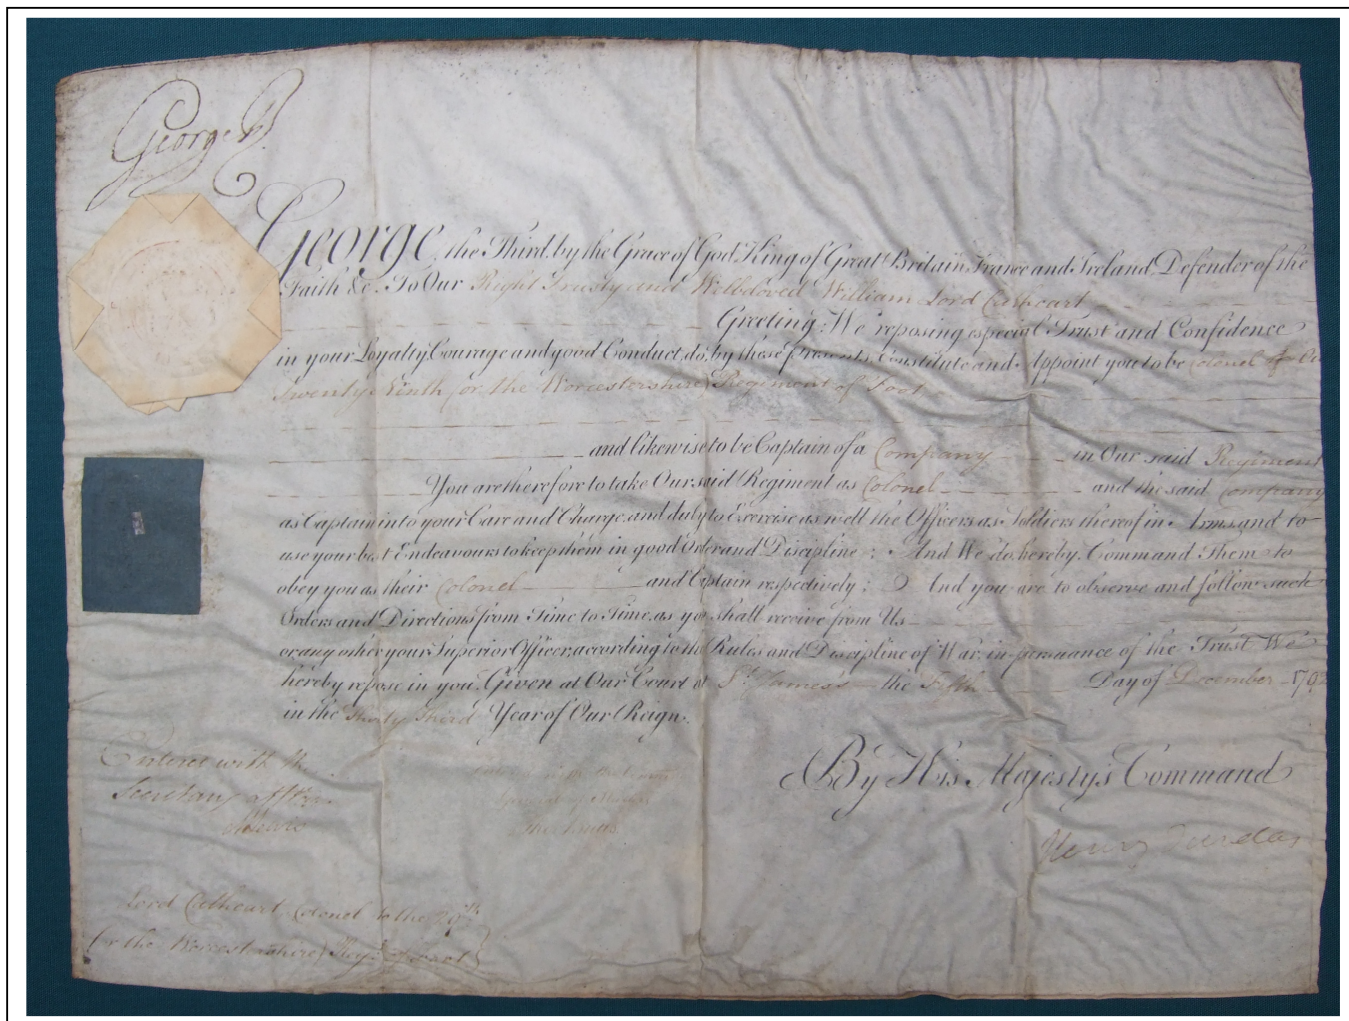 George R.
George the Third by the Grace of God King of Great Britain France and Ireland, Defender of the
Faith &c. To Our Right Trusty and Welbeloved William Lord Cathcart
Greeting: We reposing especial Trust and Confidence
in your Loyalty, Courage and good Conduct, do, by these Presents, Constitute and Appoint you to be Colonel of Our
Twenty Ninth (or the Worcestershire) Regiment of Foot
and likewise to be Captain of a Company in Our said Regiment
You are therefore to take Our said Regiment as Colonel and the said Company
as Captain into your Care and Charge, and duly to Exercise as well the Officers as Soldiers thereof in Arms, and to
use your best Endeavours to keep them in good Order and Discipline; And We do hereby Command Them to
obey you as their Colonel and Captain respectively; And you are to observe and follow such
Orders and Directions from Time to Time, as you shall receive from Us
or any other your Superior Officer, according to the Rules and Discipline of War, in pursuance of the Trust We
hereby repose in you. Given at Our Court at St. James's the Fifth Day of December 1792
in the Thirty Third Year of Our Reign.
Entered with the
Secretary at War
By His Majesty's Command
Henry Dundas
Lord Cathcart, Colonel to the 29th
(or the Worcestershire) Regt. of Foot